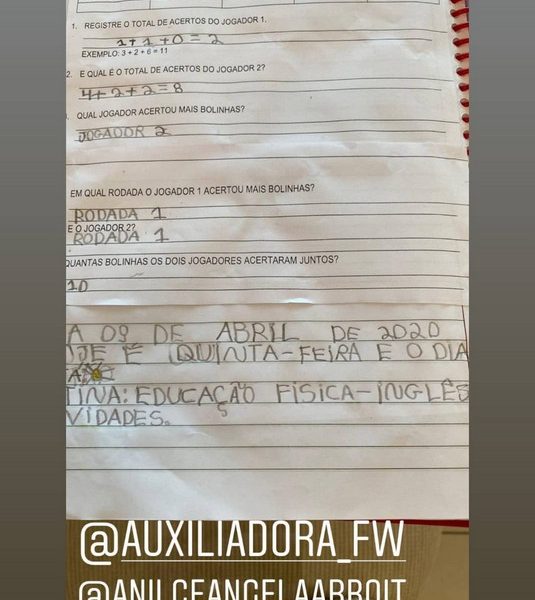 1. REGISTRE O TOTAL DE ACERTOS DO JOGADOR 1.
1+1+0=2
EXEMPLO: 3 + 2 + 6 = 11
2. E QUAL É O TOTAL DE ACERTOS DO JOGADOR 2?
4+2+2=8
QUAL JOGADOR ACERTOU MAIS BOLINHAS?
JOGADOR 2
EM QUAL RODADA O JOGADOR 1 ACERTOU MAIS BOLINHAS?
RODADA 1
E O JOGADOR 2?
RODADA 1
QUANTAS BOLINHAS OS DOIS JOGADORES ACERTARAM JUNTOS?
10
A 09 DE ABRIL DE 2020
OJE É (QU)INTA-FEIRA E O DIA
TINA: EDUCAÇÃO FÍSICA-INGLÊS
VIDADES.
@AUXILIADORA_FW
@ANILCEANGELAARBOIT